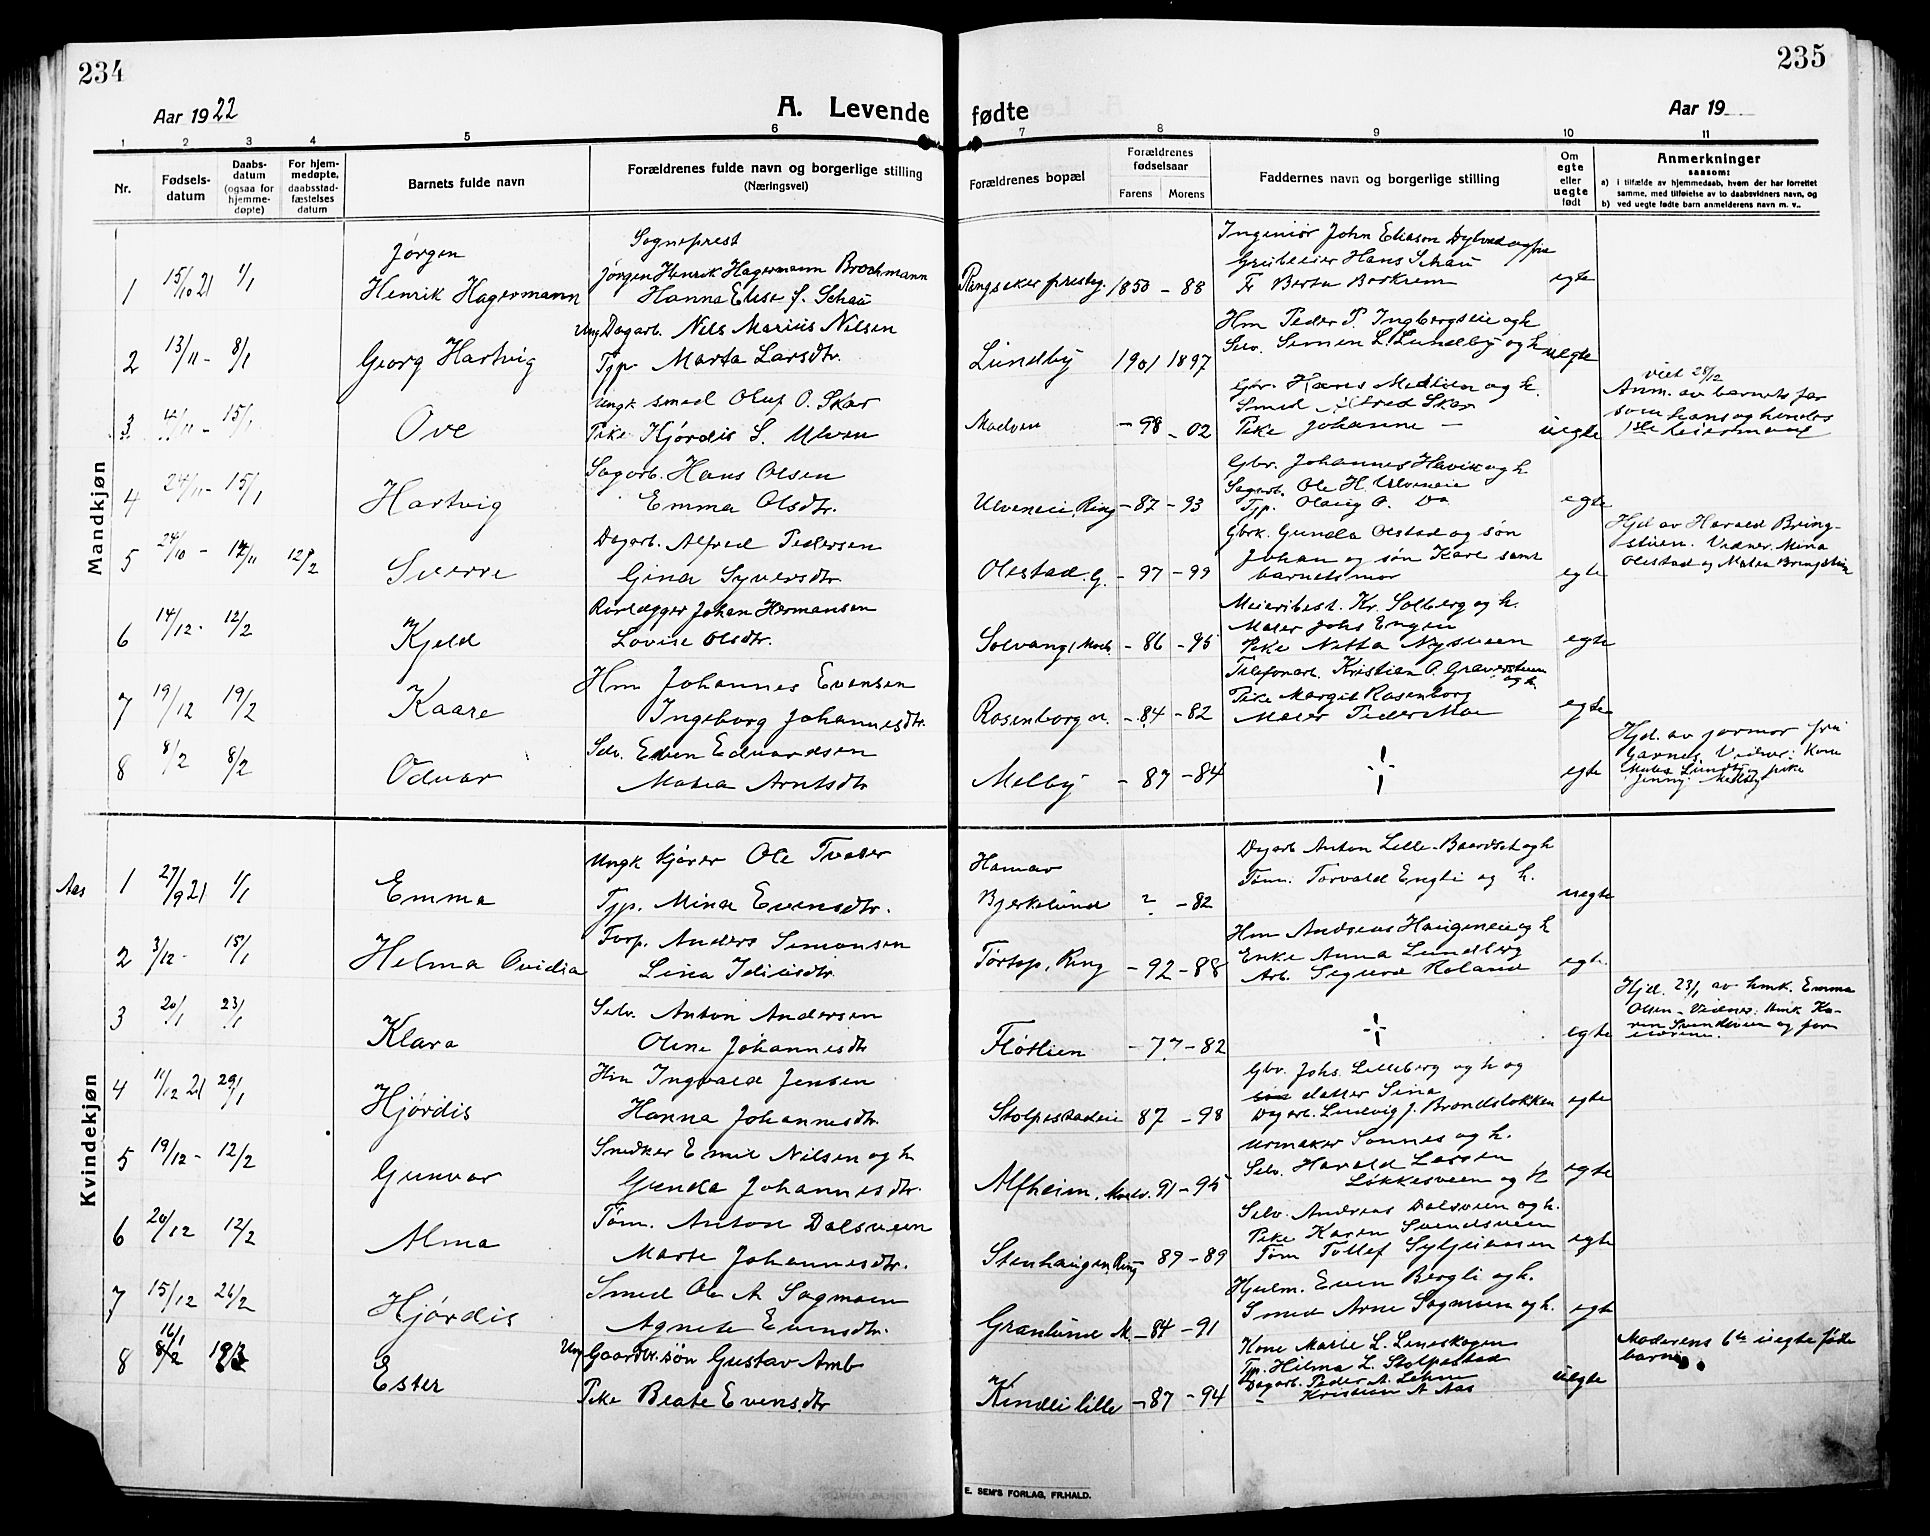 234
235
Aar 1922
A. Levende fødte
Aar 19
1 2 3 4 5 6 7 8 9 10 11
Nr.
Fødsels-
datum
Daabs-
datum
(ogsaa for
hjemme-
døpte)
For hjem-
medøpte,
daabsstad-
fæstelses
datum
Barnets fulde navn
Forældrenes fulde navn og borgerlige stilling
(Næringsvei)
Forældrenes bopæl
Forældrenes
fødselsaar
Farens Morens
Faddernes navn og borgerlige stilling
Om
egte
eller
uegte
født
Anmerkninger
saasom:
a) i tilfælde av hjemmedaab, hvem der har forrettet
samme, med tilføielse av to daabsvidners navn, og
b) ved uegte fødte barn anmelderens navn m. v..
Mandkjøn
1 15/10 21 1/1 Jørgen
Henrik Hagermann
Sogneprest
Jørgen Henrik Hagermann Brochmann
Hanna Elise f. Schau
Ringsaker prestg. 1850 - 88
Ingeniør John Eliason
Grubeeier Hans Schau
Fr Berta
egte
2 13/11 - 8/1 Georg Hartvig
Ung Dagarb. Nels Marius Nilsen
Tjp. Marta Larsdtr.
Lundby 1901 1897
Hm Peder P. Ingbergseie og h
Selv. Simen L. Lundby og h
uegte
3 4/11 - 15/1 Ove
Ungk smed Oluf O. Skar
Pike Hjørdis S. Ulven
Moelven - 98 - 02
Gbr. Hans Mælien og h.
Smed Alfred Skar
Pike Johanne -
uegte
viet 28/12
Anm. av barnets far
som hans og hendes
1ste leiermaal
4 24/11 - 15/1 Hartvig
Sagarb. Hans Olsen
Emma Olsdtr.
Ulveneie, Ring - 87 - 93
Gbr. Johannes Havik og h
Sagarb. Ole H. Ulveneie
Tjp. Olaug O. Do
egte
5 24/10 - 12/11 12/2 Sverre
Dagarb. Alfred Pedersen
Gina Syversdtr.
Olestad. G. - 97 - 99
Gbrk. Gunda Olstad og søn
Johan og søn Kåre samt
barnets mor
egte
Hjd av Harald Bring-
stuen. Vidner: Mina
Olestad og Matea Bringstuen
6 14/12 - 12/2 Kjeld
Rørlægger Johan Hermansen
Lovise Olsdtr.
Solvang, Moelv. - 86 - 95
Meieribest. Kr. Solberg og h.
Maler Johs Engen
Pike Netta Nysveen
egte
7 19/12 19/2 Kaare
Hm Johannes Evensen
Ingeborg Johannesdtr.
Rosenborg M. - 84 - 82
Telefonarb. Kristian O. Graversteen
og h.
Pike Margit Rosenborg
Maler Peder Moe
egte
8 8/2 8/2 Odvar
Selv. Even Edvardsen
Matea Arntsdtr
Melby - 87 - 84
egte
Hjd. av jormor fru
Garnes. Vidner: Kone
Matea Lundby og pike
Jenny Melby
Kvindekjøn
Aas
1 27/9 21 1/1 Emma
Ungk kjører Ole Tveter
Tjp. Mina Evensdtr.
Hamar
Bjerkelund ? - 82
Dagarb Anton Lille-Baardset og h
Tøm. Torvald Engli og h.
uegte
2 3/12 - 15/1 Helma Ovidia
Torp. Anders Simonsen
Lina Idiusdtr.
Tørtop, Ring - 92 - 88
Hm Andreas Haugeneie og h
Enke Anna Lundberg
Arb. Sigurd Roland
egte
3 20/1 23/1 Klara
Selv. Anton Andersen
Oline Johannesdtr
Fløtlien - 77 - 82
egte
Hjd. 23/1 av hmk. Emma
Olsen - Vidner: Hmk Ka-
ren Svendsveen og for-
eldrene.
4 11/12 21 29/1 Hjørdis
Hm Ingvald Jensen
Hanna Johannesdtr.
Stolpestadeie 87 - 98
Gbr. Johs. Lilleberg og h og
datter Sina
Dagarb. Ludvig J. Brændsløkken
egte
5 19/12 - 12/2 Gunvor
Snedker Emil Nilsen og h
Gunda Johannesdtr.
Alfheim, Moelv. 91 - 95
Urmaker Sonnes og h.
Selv. Harald Larsen
Løkkesveen og h
egte
6 20/12 12/2 Alma
Tøm. Anton Dalsveen
Marte Johannesdtr.
Stenhaugen, Ring - 89 - 89
Selv. Andreas Dalsveen og h.
Pike Karen Svendsveen
Tøm Tollef Syljuaasen
egte
7 15/12 26/2 Hjørdis
Smed Ole A Sagmoen
Agnete Evensdtr.
Granlund M. - 84 - 91
Hjulm. Even Bergli og h.
Smed Arne Sagmoen og h.
egte
8 16/1 Ester
Ung Gaardbr.søn Gustav Amb
Pike Beate Evensdtr
Kindli lille - 87 - 94
Kone Marte L. Lineskogen
Tjp. Hilma L. Stolpestad
Dagarb. Peder A. Lehne
- Kristian A Aas
uegte
Moderens 6te uegte fødte
barn
E. SEM'S FORLAG, FR.HALD.